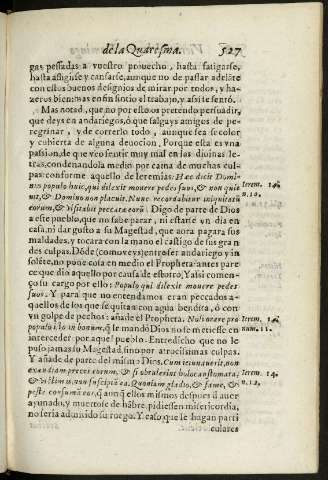 de la Quaresma. 527
gas pessadas a vuestro prouecho, hasta fatigarse,
hasta afligirse y cansarse, aunque no de passar adelãte
con ellos buenos designios de mirar por todos, y ha-
zeros bien: mas en fin sintio el trabajo, y assi se sentó.
Mas notad, que no por esto pretendo persuadir,
que deys en andariegos, ó que salgays amigos de pe-
regrinar, y de correrlo todo, aunque sea se color
y cubierta de alguna deuocion, Porque esta es vna
passion, de que veo sentir muy mal en las diuinas le-
tras, condenandola medio por cama de muchas cul-
pas: conforme aquello de Ieremias. Hæc dicit Domi-
nus populo huic, qui dilexit mouere pedes suos, & non quie
uit, & Domino non placuit. Nunc recordabitur iniquitatũ
eorum, & visitabit peccata eorũ. Digo de parte de Dios
a este pueblo, que no sabe parar, ni estarse vn dia en
casa, ni dar gusto a su Magestad, que aora pagara sus
maldades, y tocara con la mano el castigo de sus gran
des culpas. Dõde (como veys) entrose ser andariego y in
solẽte, no pone cosa en medio el Propheta: antes pare
ce que dio aquello por causa de estotro, Y assi comen-
ço su cargo por ello: Populo qui dilexit mouere pedes
suos. Y para que no entendamos eran peccados a-
quellos de los que se quitan con agua bendita, ó con
vn golpe de pechos: añade el Propheta. Noli orare pro
populo isto in bonum, q̃ le mandó Dios no se metiesse en
interceder por aquel pueblo. Entredicho que no le
puso jamas su Magestad, sino por atrocissimas culpas.
Y añade de parte del mismo Dios. Cum ieiunauerit, non
exaudiam preces eorum, & si obtulerint holocaustomata,
& victimas, non suscipiã ea. Quoniam gladio, & fame, &
peste consumã eos, q̃ aunq̃ ellos mismos despues d̃ auer
ayunado, y muertose de hãbre, pidiessen misericordia,
no seria admitido su ruego. Y caso, que se hagan parti
culares
Ierem. 14.
n. 10.
Ierem. 14.
num. 11.
Ierem. 14.
n. 12.